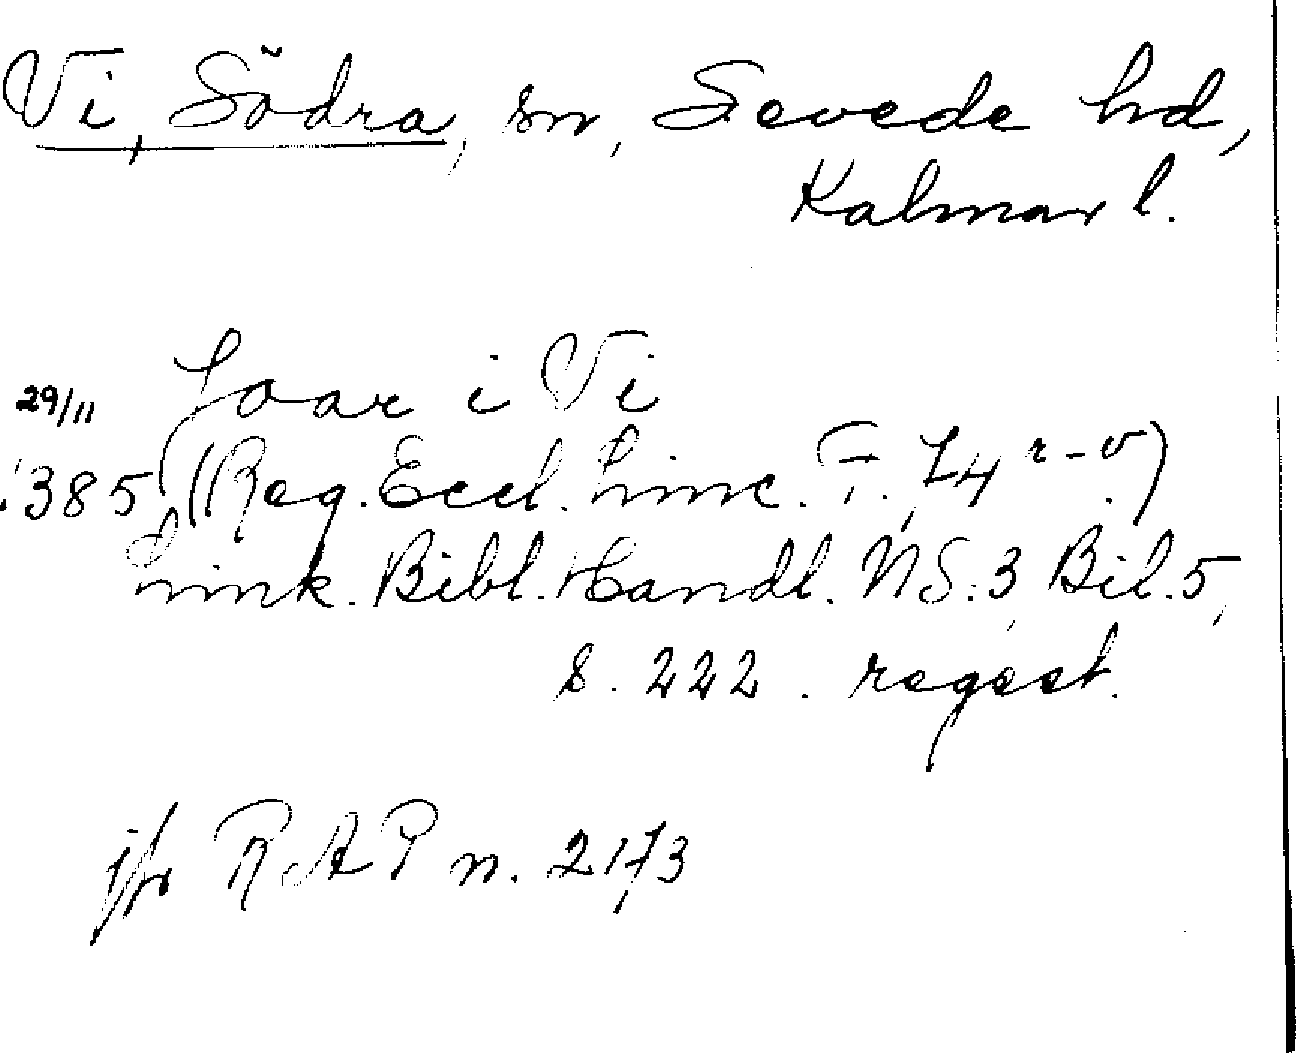 Vi, Södra, sn, Sevede hd,
Kalmar l.
29/11 Joar i Vi
1385 (Reg. Eccl. Linc. F. 74 r-v.)
Link. Bibl. Handl. NS. 3, Bil. 5,
s. 222. regest.
jfr RAP n. 2173